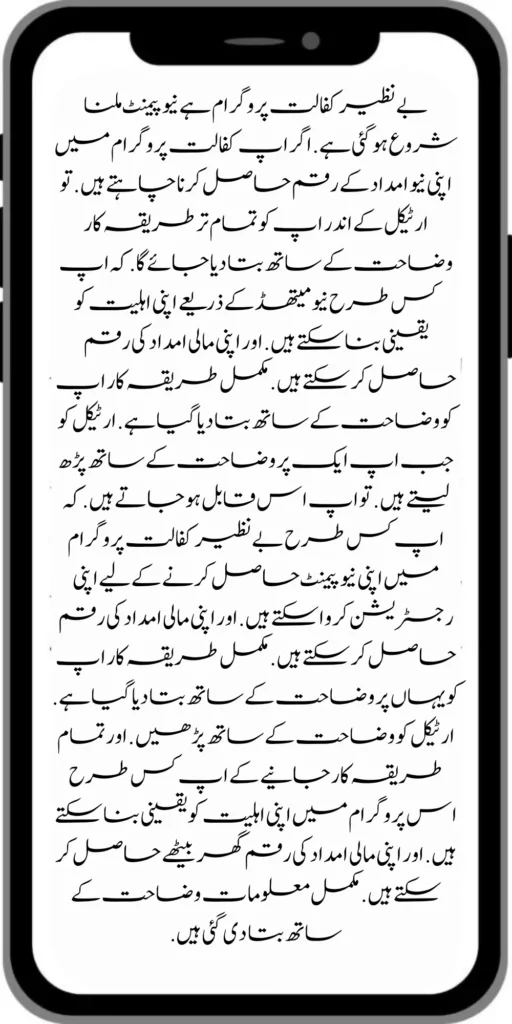 بے نظیر کفالت پروگرام ہے نیو پیمنٹ ملنا
شروع ہو گئی ہے. اگر اپ کفالت پروگرام میں
اپنی نیو امداد کے رقم حاصل کرنا چاہتے ہیں. تو
ارٹیکل کے اندر اپ کو تمام تر طریقہ کار
وضاحت کے ساتھ بتا دیا جائے گا. کہ اپ
کس طرح نیو میتھڈ کے ذریعے اپنی اہلیت کو
یقینی بنا سکتے ہیں. اور اپنی مالی امداد کی رقم
حاصل کر سکتے ہیں. مکمل طریقہ کار اپ
کو وضاحت کے ساتھ بتا دیا گیا ہے. ارٹیکل کو
جب اپ ایک پر وضاحت کے ساتھ پڑھ
لیتے ہیں. تو اپ اس قابل ہو جاتے ہیں. کہ
اپ کس طرح بے نظیر کفالت پروگرام
میں اپنی نیو پیمنٹ حاصل کرنے کے لیے اپنی
رجسٹریشن کروا سکتے ہیں. اور اپنی مالی امداد کی رقم
حاصل کر سکتے ہیں. مکمل طریقہ کار اپ
کو یہاں پر وضاحت کے ساتھ بتا دیا گیا ہے.
ارٹیکل کو وضاحت کے ساتھ پڑھیں. اور تمام
طریقہ کار جانیے کے اپ کس طرح
اس پروگرام میں اپنی اہلیت کو یقینی بنا سکتے
ہیں. اور اپنی مالی امداد کی رقم گھر بیٹھے حاصل کر
سکتے ہیں. مکمل معلومات وضاحت کے
ساتھ بتا دی گئی ہیں.